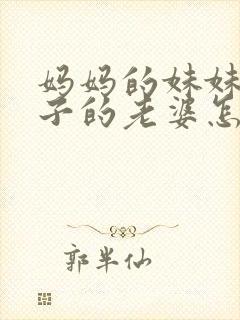 妈妈的妹妹
子的老婆怎
郭半仙